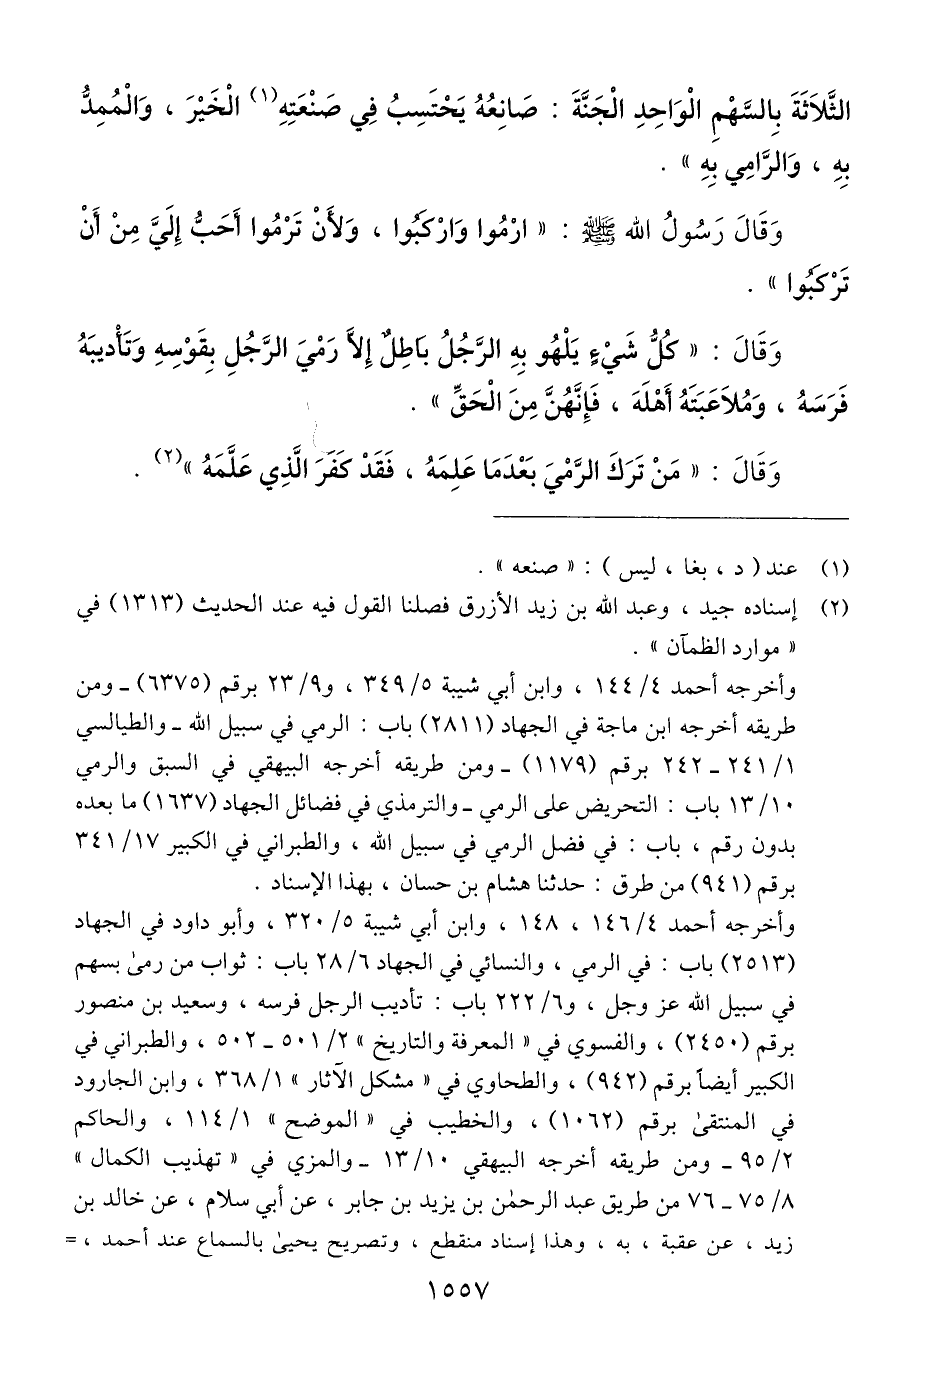 الثَّلاَثَةَ بِالسَّهْمِ الْوَاحِدِ الْجَنَّةَ : صَانِعُهُ يَحْتَسِبُ فِي صَنْعَتِهِ(١) الْخَيْرَ ، وَالْمُمِدُّ
بِهِ ، وَالرَّامِي بِهِ » .
وَقَالَ رَسُولُ الله ﷺ : « ارْمُوا وَارْكَبُوا ، وَلأَنْ تَرْمُوا أَحَبُّ إِلَيَّ مِنْ أَنْ
تَرْكَبُوا » .
وَقَالَ : « كُلُّ شَيْءٍ يَلْهُو بِهِ الرَّجُلُ بَاطِلٌ إِلاَّ رَمْيَ الرَّجُلِ بِقَوْسِهِ وَتَأْدِيبَهُ
فَرَسَهُ ، وَمُلاَعَبَتَهُ أَهْلَهَ ، فَإِنَّهُنَّ مِنَ الْحَقِّ » .
وَقَالَ : « مَنْ تَرَكَ الرَّمْيَ بَعْدَمَا عَلِمَهُ ، فَقَدْ كَفَرَ الَّذِي عَلَّمَهُ »(٢) .
(١) عند ( د ، بغا ، ليس ) : « صنعه » .
(٢) إسناده جيد ، وعبد الله بن زيد الأزرق فصلنا القول فيه عند الحديث (١٣١٣) في
« موارد الظمآن » .
وأخرجه أحمد ٤/ ١٤٤ ، وابن أبي شيبة ٥/ ٣٤٩ ، و٩/ ٢٣ برقم (٦٣٧٥) ـ ومن
طريقه أخرجه ابن ماجة في الجهاد (٢٨١١) باب : الرمي في سبيل الله ـ والطيالسي
١/ ٢٤١ ـ ٢٤٢ برقم (١١٧٩) ـ ومن طريقه أخرجه البيهقي في السبق والرمي
١٠/ ١٣ باب : التحريض على الرمي ـ والترمذي في فضائل الجهاد (١٦٣٧) ما بعده
بدون رقم ، باب : في فضل الرمي في سبيل الله ، والطبراني في الكبير ١٧/ ٣٤١
برقم (٩٤١) من طرق : حدثنا هشام بن حسان ، بهذا الإسناد .
وأخرجه أحمد ٤/ ١٤٦ ، ١٤٨ ، وابن أبي شيبة ٥/ ٣٢٠ ، وأبو داود في الجهاد
(٢٥١٣) باب : في الرمي ، والنسائي في الجهاد ٦/ ٢٨ باب : ثواب من رمىٰ بسهم
في سبيل الله عز وجل ، و٦/ ٢٢٢ باب : تأديب الرجل فرسه ، وسعيد بن منصور
برقم (٢٤٥٠) ، والفسوي في « المعرفة والتاريخ » ٢/ ٥٠١ ـ ٥٠٢ ، والطبراني في
الكبير أيضاً برقم (٩٤٢) ، والطحاوي في « مشكل الآثار » ١/ ٣٦٨ ، وابن الجارود
في المنتقىٰ برقم (١٠٦٢) ، والخطيب في « الموضح » ١/ ١١٤ ، والحاكم
٢/ ٩٥ ـ ومن طريقه أخرجه البيهقي ١٠/ ١٣ ـ والمزي في « تهذيب الكمال »
٨/ ٧٥ ـ ٧٦ من طريق عبد الرحمٰن بن يزيد بن جابر ، عن أبي سلام ، عن خالد بن
زيد ، عن عقبة ، به ، وهذا إسناد منقطع ، وتصريح يحيىٰ بالسماع عند أحمد ، =
١٥٥٧